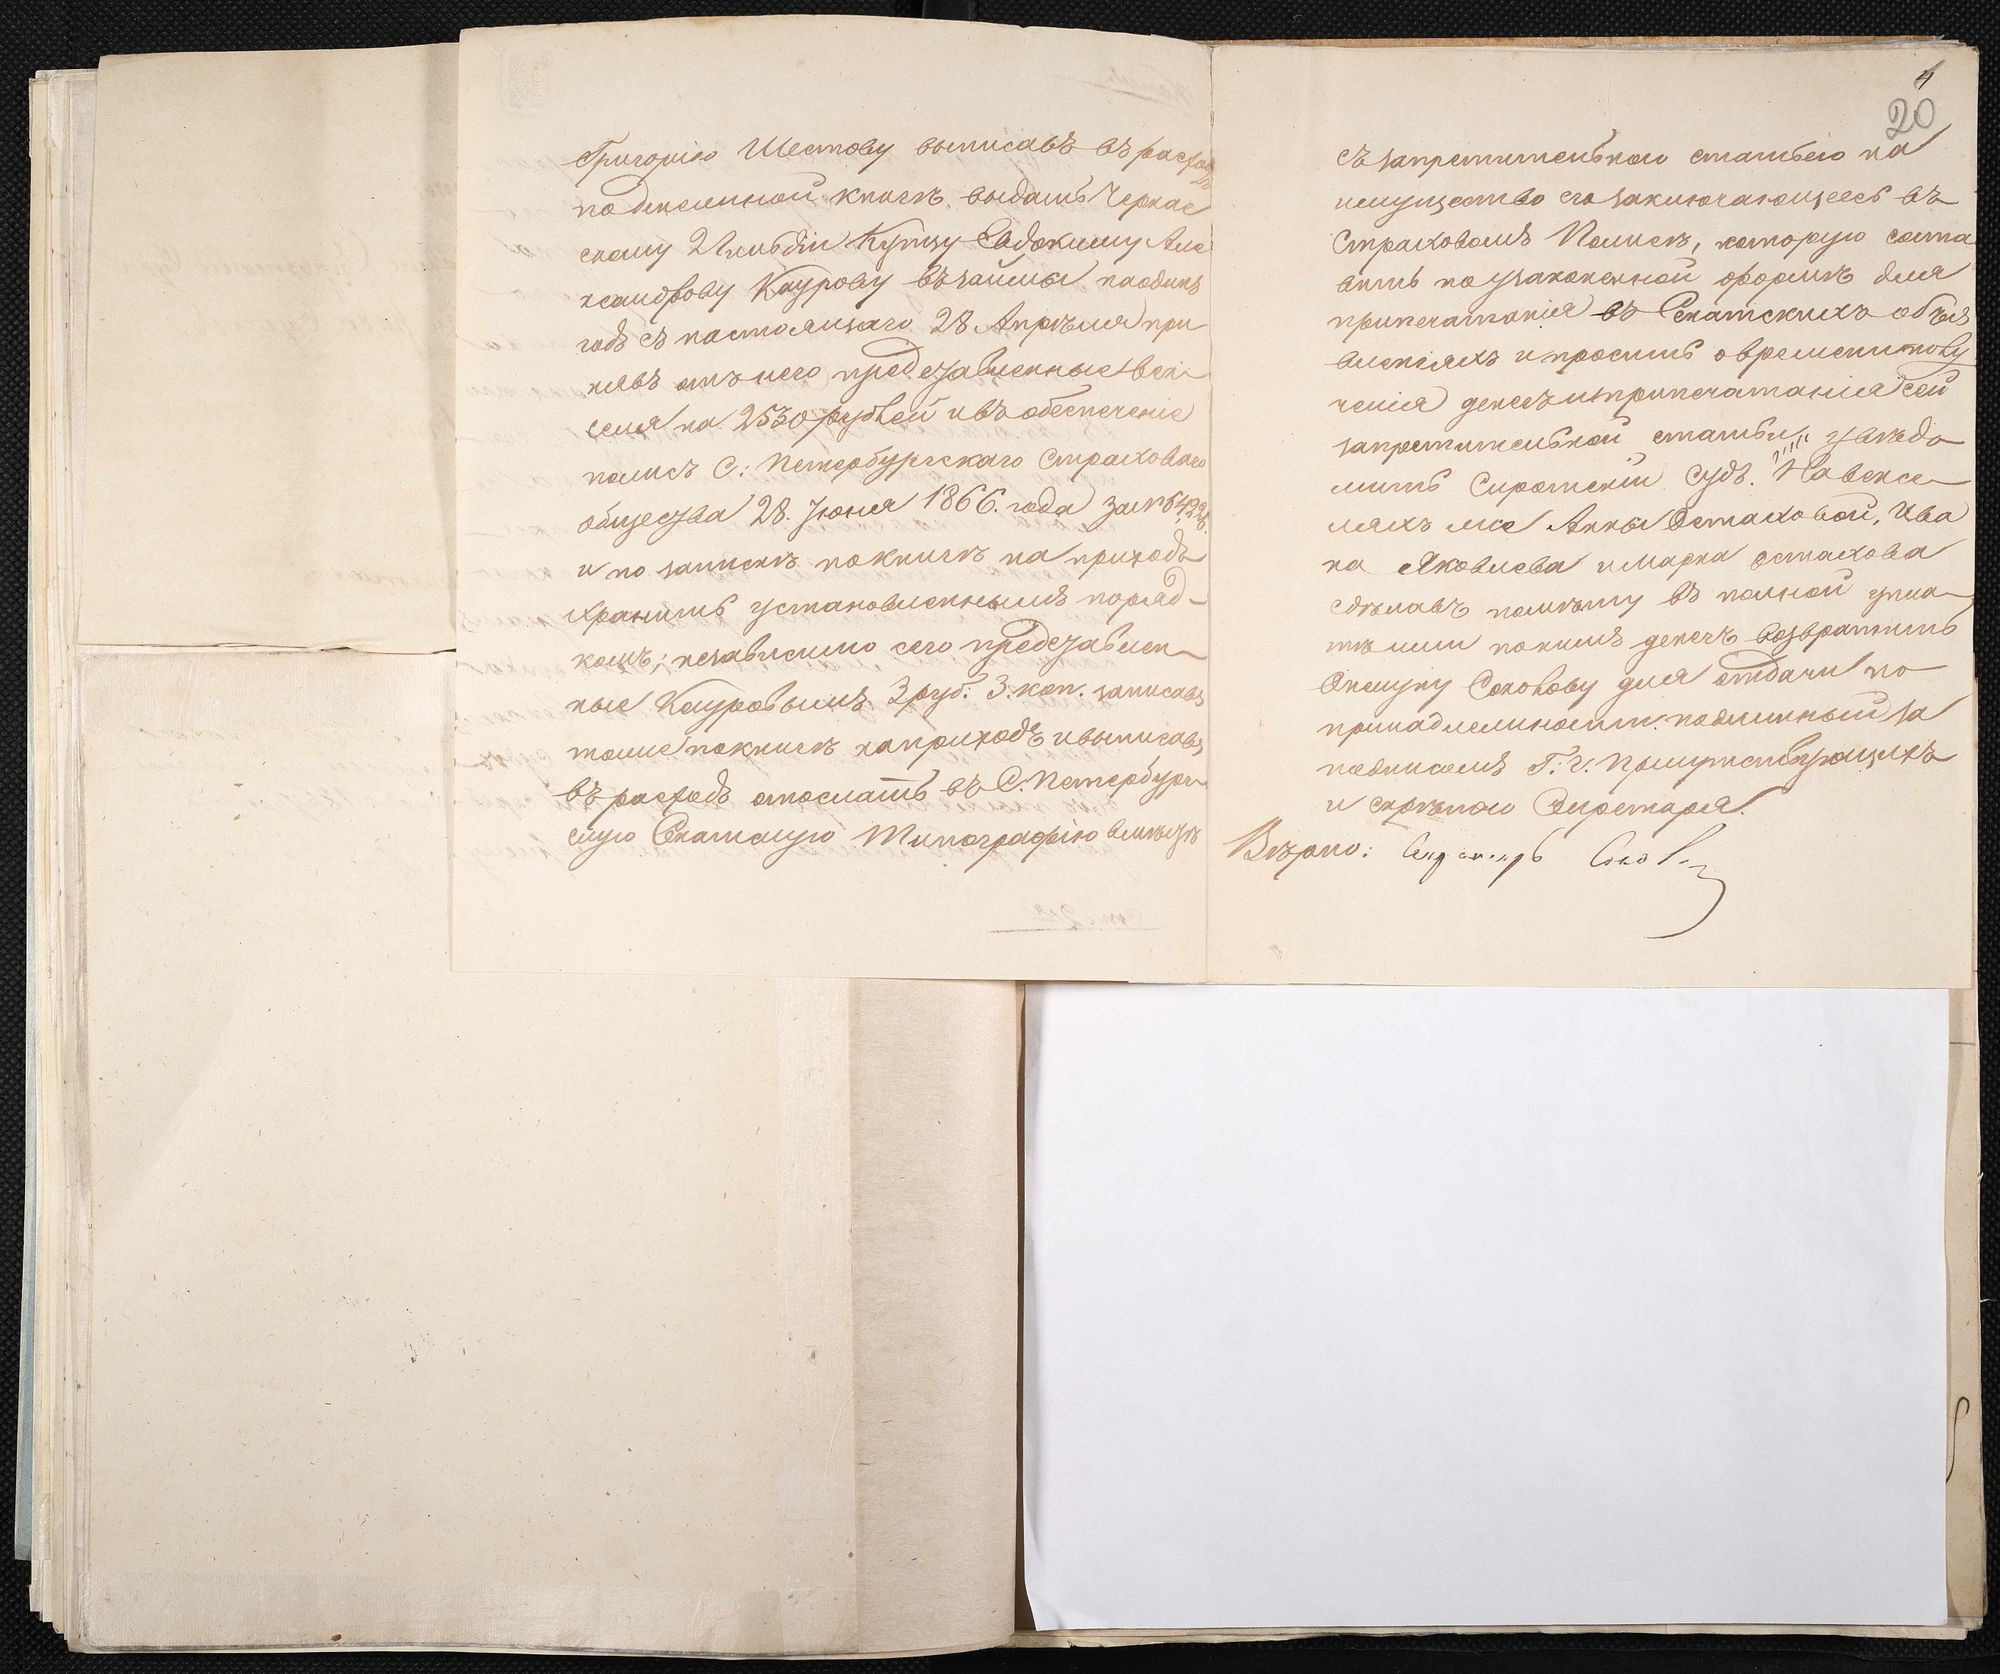 Григорію Шестову выписавъ въ расходъ
по денежной книгѣ, выдать Черкас
скому 2 Гильдіи Купцу Евдокиму Але
ксандрову Каурову въ займы на одинъ
годъ съ настоящаго 28 Апрѣля при-
нявъ отъ него представленные век-
селя на 2530 рублей и въ обеспеченіе
полисъ С: Петербургскаго Страховаго
общества 28. Іюня 1866. года за №
и по запискѣ по книгѣ на приходъ
хранить установленнымъ поряд-
комъ; независимо сего представлен-
ные Кауровымъ 3 руб: 3. коп. записавъ
тоже по книгѣ на приходъ и выписавъ
въ расходъ отослать въ С. Петербург-
скую Сенатскую Типографію вмѣстѣ
4
20
съ запретительною статьею на
имущество его заключающееся въ
Страховомъ Полисѣ, которую соста
вить по узаконенной формѣ для
припечатанія въ Сенатскихъ объяв
вленіяхъ и просить о времени полу
ченія денегъ и припечатанія сей
запретительной статьи, увѣдо-
мить Сиротскій Судъ. На вексе-
ляхъ же Анны Остаховой, Ива
на Яковлева и Марка Остахова
сдѣлавъ помѣту въ полной упла-
тѣ ими по нимъ денегъ возвратить
Опекуну Соколову для отдачи по
принадлежности. подлинный за
подписомъ Г. г. Присутствующихъ
и скрѣпою Секретаря.
Вѣрно: Секретарь